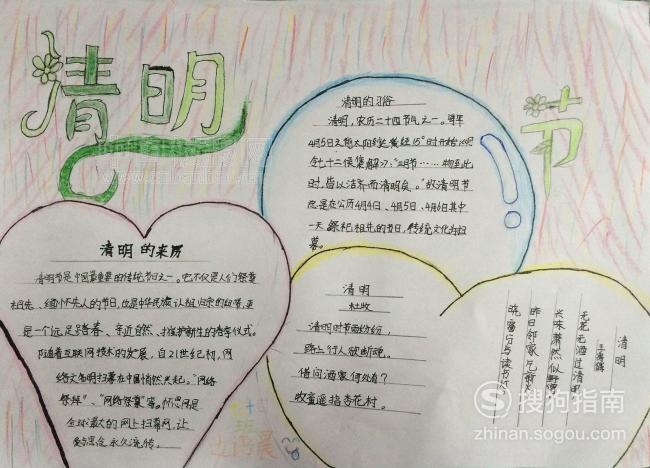 清明
节
清明的习俗
清明，农历二十四节气之一。每年
4月5日前后太阳到达黄经15°时开始。《明
令七十二候集解》：“三月节……物至此
时，皆以洁齐而清明矣。”故清明节
总是在公历4月4日、4月5日、4月6日其中
一天。祭祀祖先的节日，传统文化为扫
墓。
清明的来历
清明节是中国最重要的传统节日之一。它不仅是人们祭奠
祖先、缅怀先人的节日，也是中华民族认祖归宗的纽带，更
是一个远足踏春、亲近自然、扫拔护新生的春季仪式。
随着互联网技术的发展，自21世纪初，网
络文明扫墓在中国悄然兴起。“网络
祭拜”、“网络祭奠”等。怀思网是
全球最大的网上扫墓网，让
爱与思念永久流传。
清明
杜牧
清明时节雨纷纷，
路上行人欲断魂。
借问酒家何处有？
牧童遥指杏花村。
清明
王禹偁
无花无酒过清明
兴味萧然似野僧
昨日邻家乞新火
晓窗分与读书灯
搜狗指南
zhinan.sogou.com